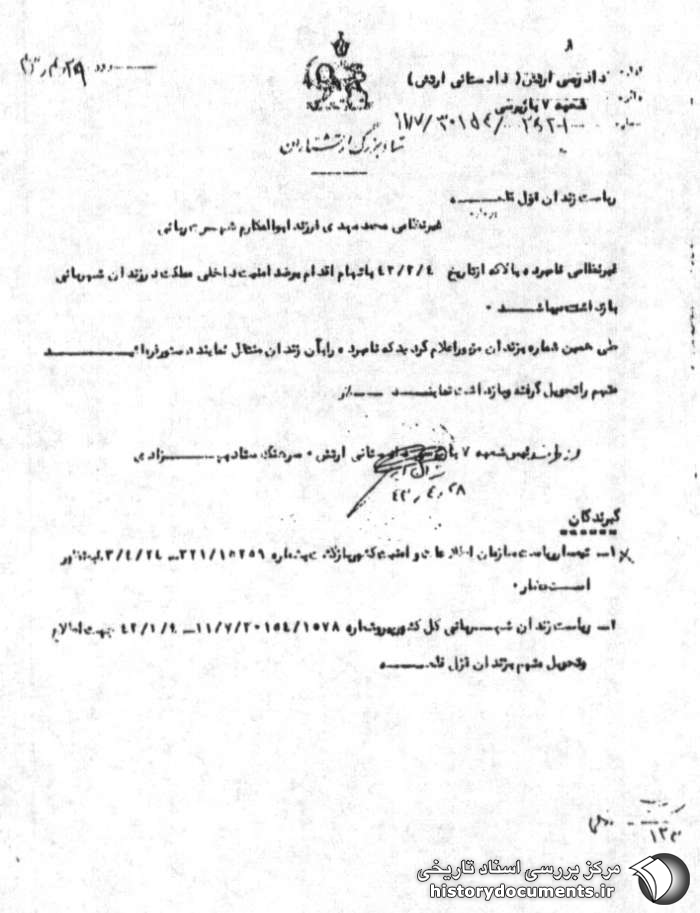 دادرسی ارتش ( دادستانی ارتش )
شعبه ۷ بازپرسی
ستاد بزرگ ارتشتاران
ریاست زندان قزل قلعه
غیرنظامی محمد مهدی فرزند ابوالمکارم شهرت ربانی
غیرنظامی نامبرده بالا که از تاریخ ۴۲/۲/۴ باتهام اقدام برضد امنیت داخلی مملکت در زندان شهربانی
بازداشت میباشد .
طی همین شماره بزندان مزبور اعلام گردید که نامبرده را بآن زندان منتقل نمایند دستور فرمائید
متهم را تحویل گرفته و بازداشت نمایند
شعبه ۷ بازپرسی دادستانی ارتش . سرهنگ ستاد بهزادی
۴۳٫۴٫۲۸
گیرندگان
۱ــ تیمسار ریاست سازمان اطلاعات و امنیت کشور بازگشت بشماره
است دعار .
ریاست زندان شهربانی کل کشور پیرو شماره ۱۱/۷/۲۰۱۵۴/۱۵۷۸ــ جهت اطلاع
وتحویل متهم بزندان قزل قلعه
مرکز بررسی اسناد تاریخی
historydocuments.ir